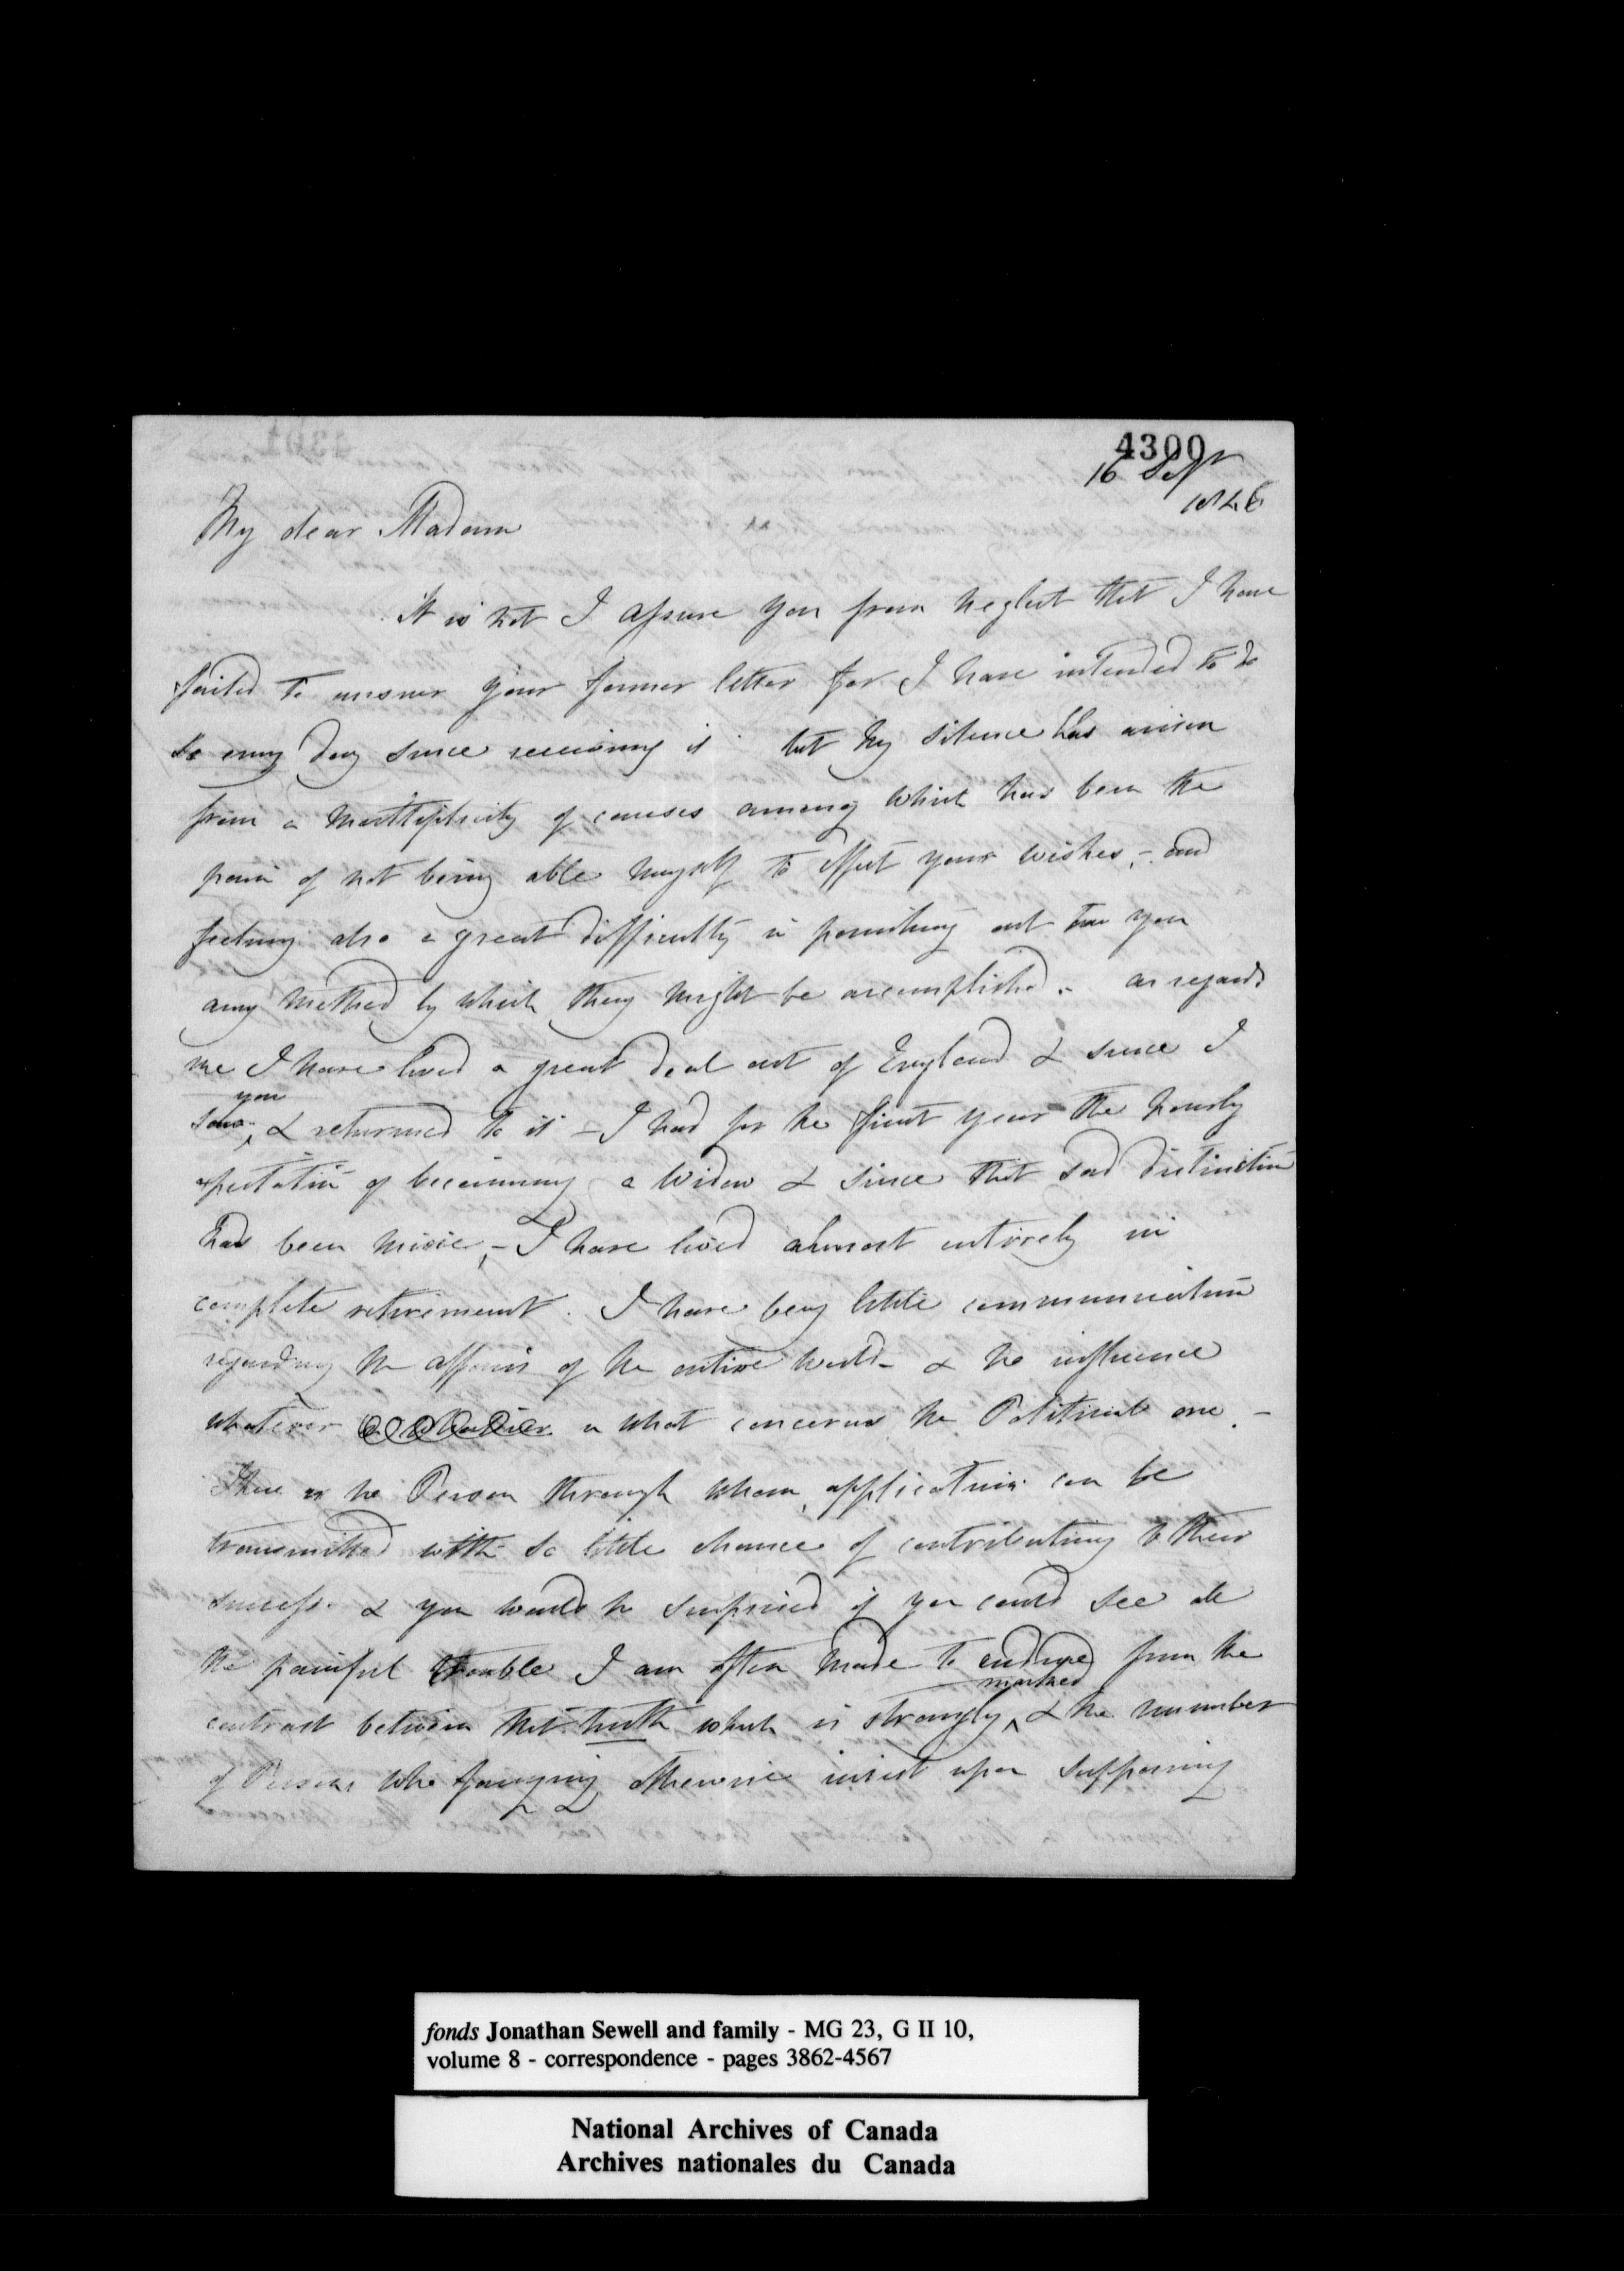 4300
16 Sepr
1846
My dear Madam
It is not I assure you from neglect that I have
failed to answer your former letter for I have intended to do
so every day since receiving it but my silence has arisen
from a multiplicity of causes among which has been the
pain of not being able myself to effect your wishes, - and
feeling also a great difficulty in pointing out to you
any method by which they might be accomplished. - as regards
me I have lived a great deal out of England & since I
saw you & returned to it - I had for the first year the hourly
expectation of becoming a Widow & since that sad distinction
has been mine, - I have lived almost entirely in
complete retirement. I have very little communication
regarding the affairs of the entire world - & no influence
whatever in what concerns the Political one. -
There is no Person through whom application can be
transmitted with so little chance of contributing to their
success & you would be surprised if you could see all
the painful trouble I am often made to endure from the
contrast between that truth which is strongly marked & the number
of Persons who fancying otherwise insist upon supposing
fonds Jonathan Sewell and family - MG 23, G II 10,
volume 8 - correspondence - pages 3862-4567
National Archives of Canada
Archives nationales du Canada